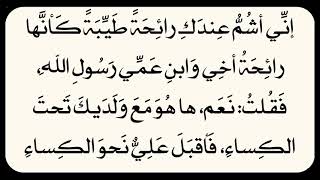 إنِّي أَشُمُّ عِندَكِ رائِحَةً طَيِّبَةً كَأنَّها
رائِحَةُ أخِي وَابنِ عَمِّي رَسُولِ اللهِ،
فَقُلتُ: نَعَم، ها هُوَ مَعَ وَلَدَيكَ تَحتَ
الكِساءِ، فَأقبَلَ عَلِيٌّ نَحوَ الكِساءِ